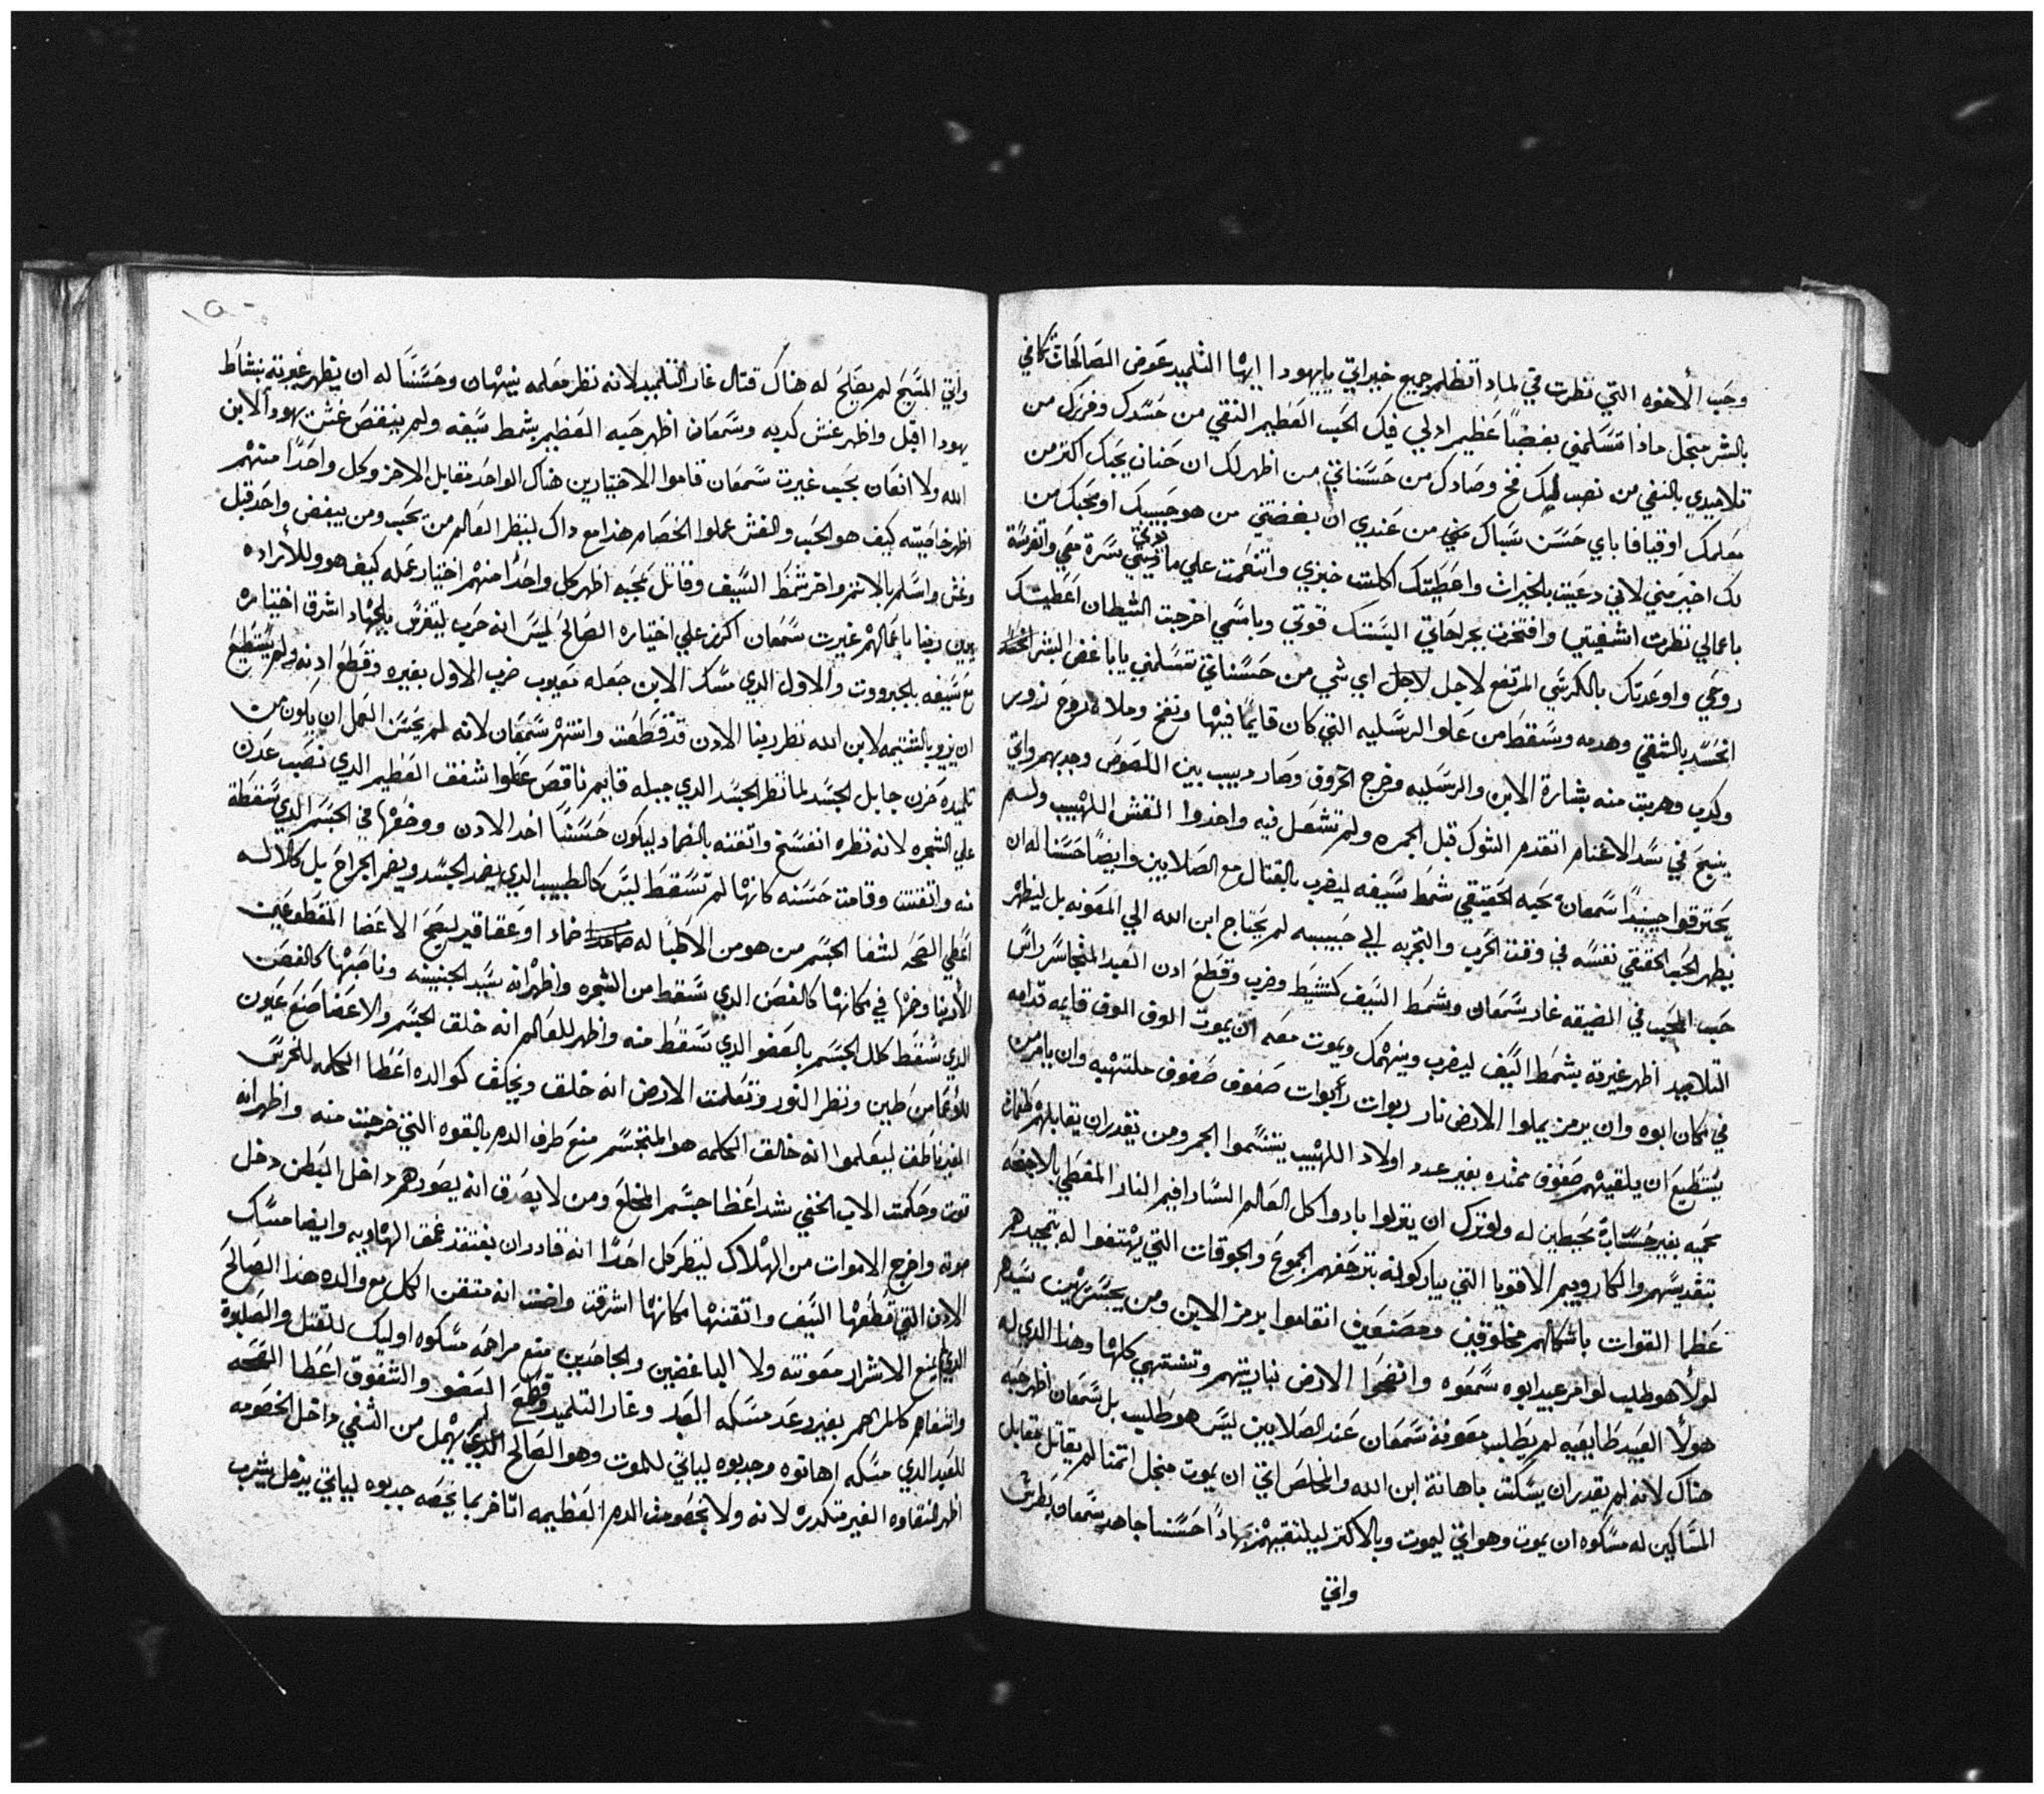 وحب الأخوه التي نظرت في لماد اتظلم جميع خيراتي يايهودا ايها التلميد عوض الصالحات تكافي
بالشر منجل مادا تسلمني بغضبًا عظيم ادلي فيك الحب العظيم النقي من حسدك وفرزك من
تلاميدي بالنفي من نصب ليك فخ وصادك من حسناتي من اظهر لك ان حنان يحبك اكتر من
معلمك او قيافا باي حسن سباك مني من عندي ان بغضتني من هو حبيبك او محبك من
لك اخبرني لاني دعيت بالخيرات واعطيتك اكلت خبزي وانتقمت علي ما سرة معي واتفرسة
باعمالي نظرت اشفيتي وافتخرت بجراحاتي البستك قوتي وباسمي اخرجت الشيطان اعطيتك
روحي واوعدتك بالكرسي المرتفع لاجل لاجل اي شي من حسناتي تسلمني ياباغض البشر
انحسد بالشقي وهدمه وسقط من علو الرسليه التي كان قايمًا فيها ونفخ وملاه زور
ولدب وهربت منه بشارة الابن والرسليه وخرج الخروف وصار دبيب بين اللصوص وجد بهم واتي
ينبح في سد الاغنام اتقدم الشوك قبل الجمره ولم تشعل فيه واخدوا القش اللهيب ولم
يحترقوا حينيدًا سمعان بحبه الحقيقي شمط سيفه ليضرب بالقتال مع الصلابين وايضًا حسنا له ان
يظهر الحب الحقيقي نفسه في وقت الحرب والتجربه الي حبيبه لم يحتاج ابن الله الي المعونه بل ليظهر
حب المحب في الضيقه غار سمعان وشمط السيف كنشيط وضرب وقطع ادن العبد المتجاسر راس
التلاميد اظهر غيرته بشمط السيف ليضرب وينهمك ويموت معه ان يموت الوف الوف قايمه قدامه
في مكان ابوه وان يرمز يملوا الارض نار ربوات ربوات صفوف صفوف ملتهبه وان يامر من
يستطيع ان يلقيهم صفوف ممتده بغير عدد اولاد اللهيب يتنسموا الجمر ومن يقدر ان يقابلهم
محميه بغير حسابة محيطين له ولو ترك ان ينزلوا بادوا كل العالم السارافيم النار المغطي بالاجنحه
بتقديسهم والكاروبيم الاقويا التي يباركونه بتزحفهم الجموع والجوقات التي يهتفوا له بتمجيدهم
عظما القوات باشكالهم مخلوقين ومصنعين انقاموا برمز الابن ومن يحسر يهين سيدهم
لولأ هو طلب لوامر عبيد ابوه سمعوه وانضحوا الارض بناريتهم وتنتهي كلها وهذا الدي له
هولأ العبيد طايعيه لم يطلب معونة سمعان عند الصلابين ليس هو طلب بل سمعان اظهر حبه
هناك لانه لم يقدر ان يسكت باهانة ابن الله والمخلص اتي ان يموت منجل اتمنا لم يقاتل مقابل
المساكين له مسكوه ان يموت وهو اتي ليموت وبالاكتر ليلتقيهم بهادًا حسنا جاهد سمعان بطرس
واتي
واتي المسيح لم يصلح له هناك قتال غار التلميد لانه نظر معلمه يتهان وحسنًا له ان يظهر غيرته بنشاط
يهودا اقبل واظهر غش كدبه وسمعان اظهر حبه العظيم بشمط سيفه ولم ينقص غش يهودا لابن
الله ولا انعان بحب غيرت سمعان قاموا الاختيارين هناك الواحد مقابل الاخر وكل واحدًا منهم
اظهر خاصيته كيف هو الحب والغش عملوا الخصام هذا مع داك لينظر العالم من يحب ومن يبغض واحد قبل
وغش واسلم بالاتم واخر شمط السيف وقاتل بمحبه اظهر كل واحدًا منهم اختيار عمله كيف هو وللأراده
يدين ربنا باعمالهم غيرت سمعان اكرز علي اختياره الصالح ليس انه حرب ليتفرس بالجهاد اشرق اختياره
مع سيفه بالجبرووت والاول الدي مسك الابن جعله معيوب ضرب الاول بغيره وقطع ادنه ولم يستطيع
ان يزو بالشتيمه لابن الله نظر ربنا الادن قد قطعت وانتهر سمعان لانه لم يحسن العمل ان يكون من
تلميده حزن جابل الجسد لما نظر الجسد الدي جبله قايم ناقص عملوا شفق العظيم الدي نصب عدن
علي الشجره لانه نظره انفسخ واتقنه بالضماد ليكون حسنًا اخد الادن ووضعها في الجسم الدي سقطة
منه واتقنت وقامت حسنه كانها لم تسقط ليس كالطبيب الدي يضمد الجسد ويضم الجراح بل كالاله
اعطي الصحه لشفا الجسم من هو من الاطبا له ضماد او عقاقير ليصح الاعضا المقطوعين
الأدن وضمها في مكانها كالغصن الدي سقط من الشجره واظهر انه سيد الجنينه وناصبها كالغصن
الدي سقط كلل الجسم بالعضو الدي سقط منه واظهر للعالم انه خلق الجسم والاعضا صنع عيون
للأعما من طين ونظر النور وتعلمت الارض انه خلق ويخلق كوالده اعطا الكلمه للخرس
الغير ناطق ليعلموا انه خالق الكلمه هو المتجسم منع طرف الدم بالقوه التي خرجت منه واظهر انه
قوت وحكمت الاب الخفي شد اعظا جسم المخلع ومن لا يصدق انه يصورهم داخل البطن دخل
موته واخرج الاموات من الهلاك لينظر كل احدًا انه قادر ان يفتقد عمق الهاويه وايضا مسك
الادن التي قطعها السيف واتقنها مكانها اشرقت واضت انه متقن الكل مع والده هذا الصالح
الدي لم يمنع الاشرار معونته ولا الباغضين والجاحدين منع مراحمه مسكوه اوليك للقتل والصلبوة
واشفاهم كالمراحم بغير وعد مسكه العبد وغار التلميد وقطع العضو والشفوق اعطا الصحه
للعبد الدي مسكه اهانوه وجدبوه لياتي للموت وهو الصالح الدي لم يهمل من الشفي داخل الخصومه
اظهر لنقاوه الغير متكدره لانه ولا بخصومت الدم العظيمه اتاخر بما يخصه جدبوه لياتي يبدل يشرب